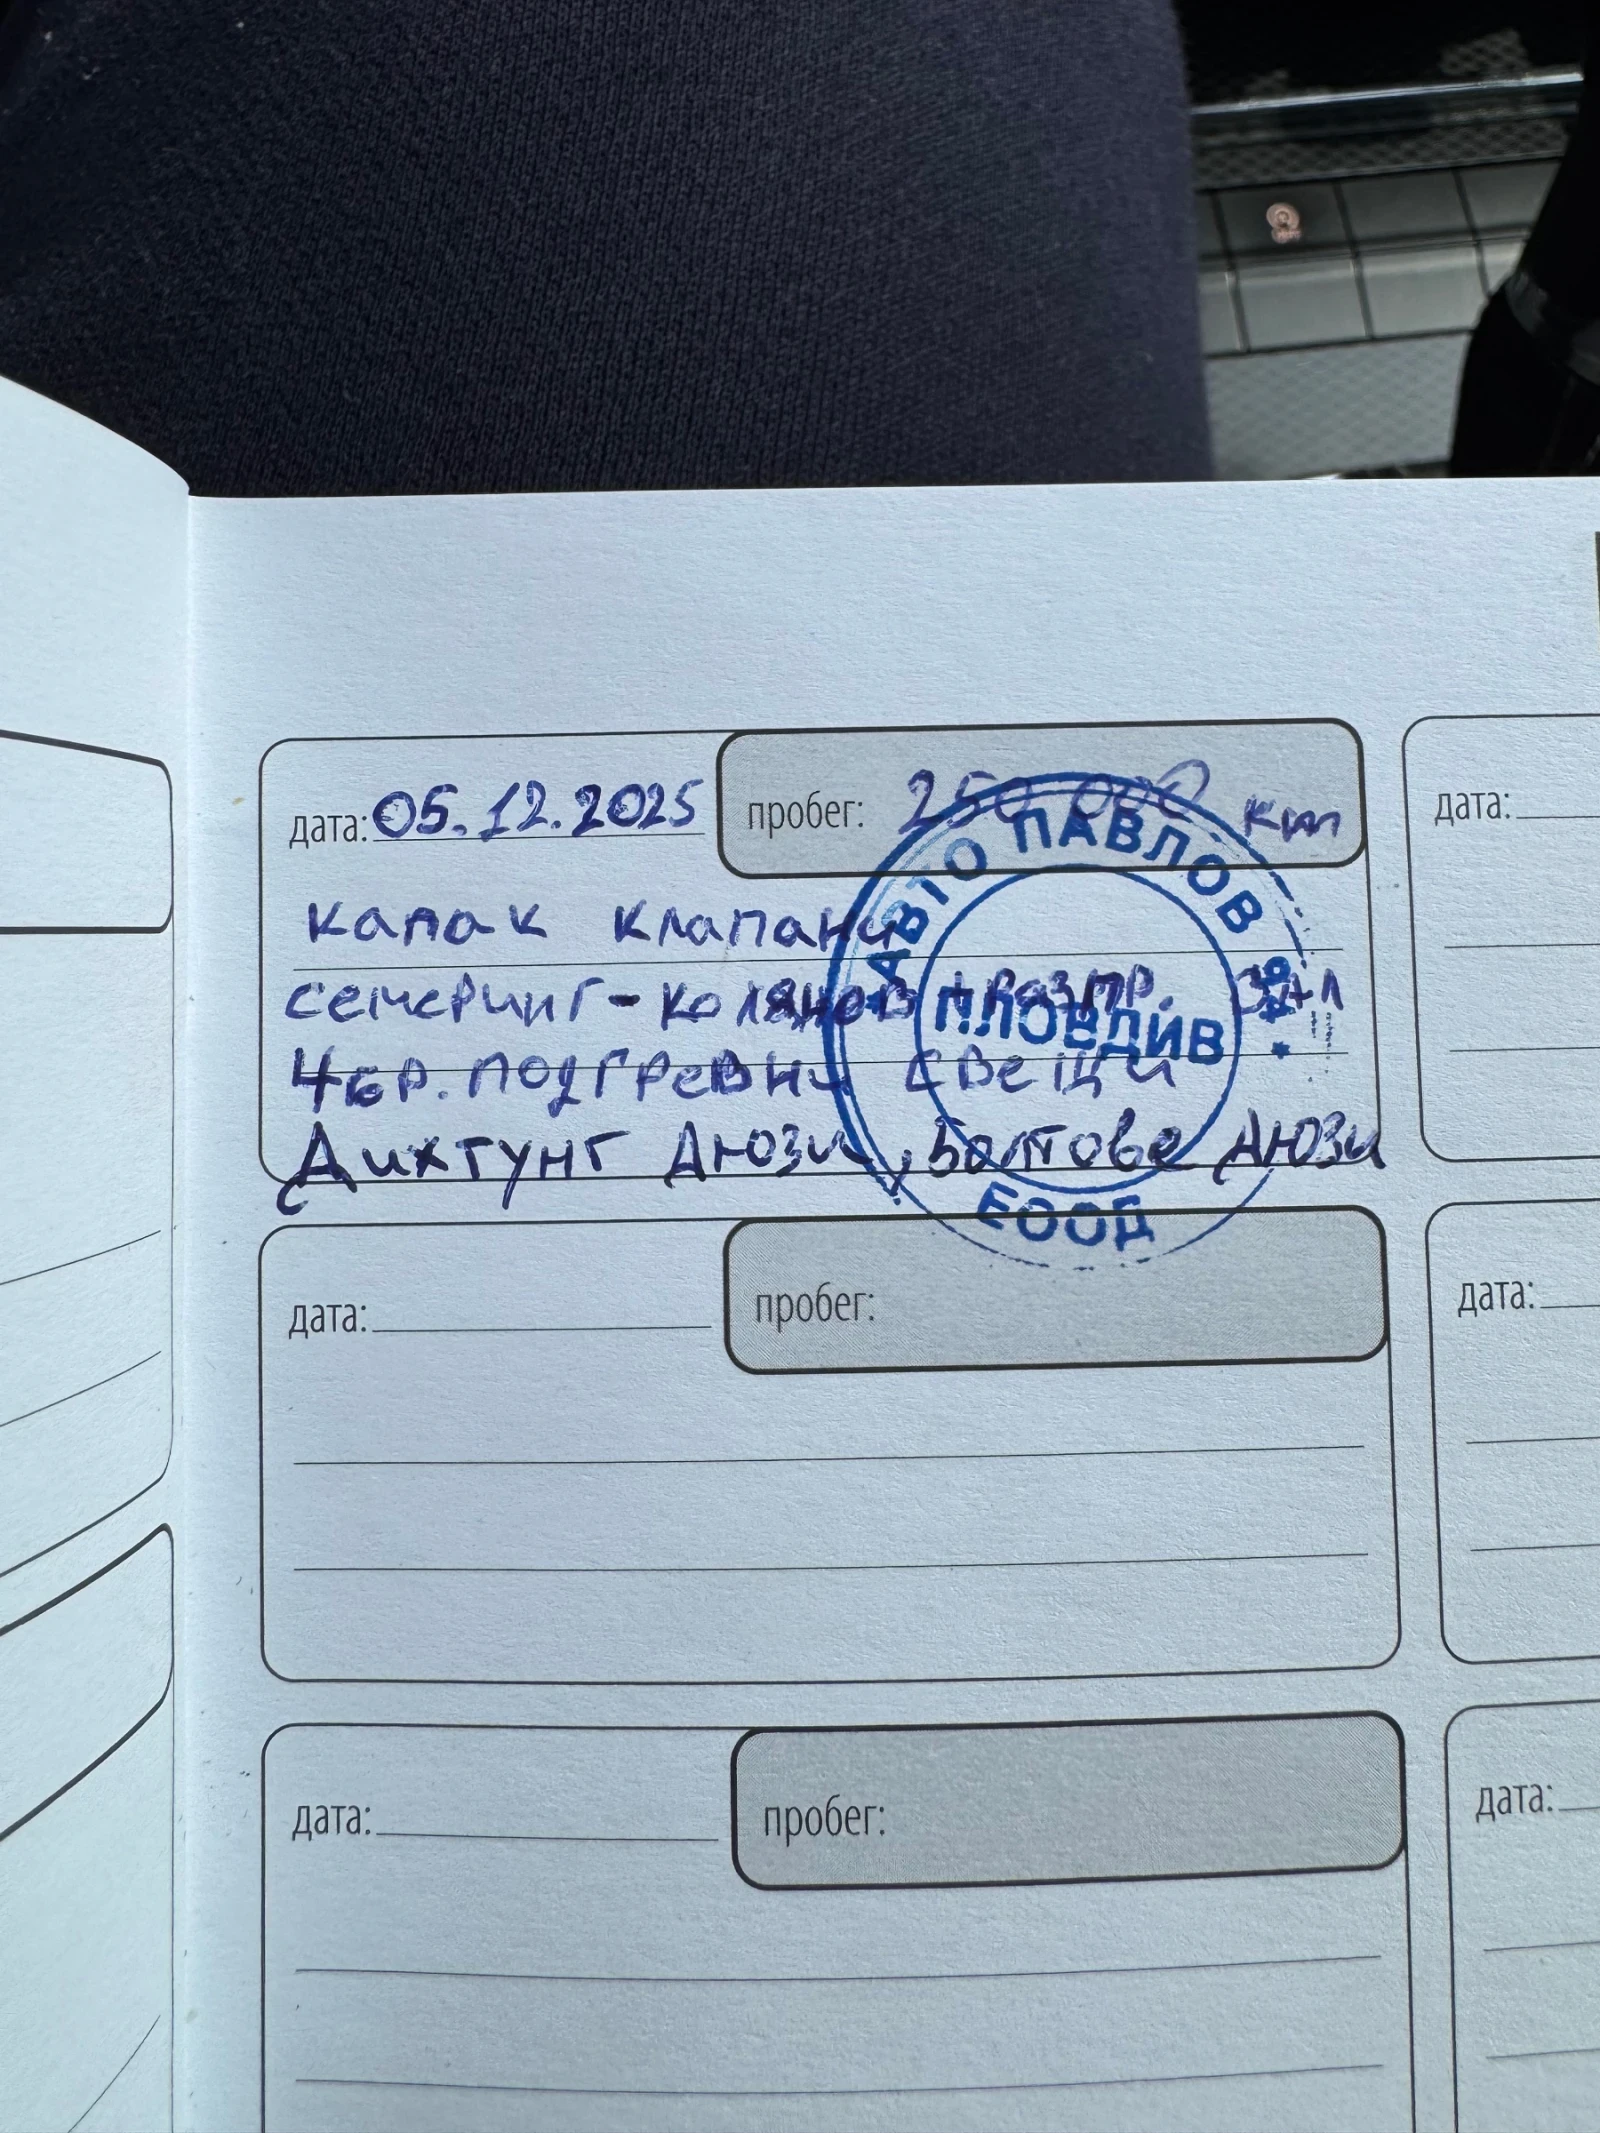 дата: 05.12.2025 пробег: 250 000 km
капак клапани
семеринг-колянов + Разпр. ВАЛ
4бр. подгревни свещи
Дихтунг Дюзи, Болтове Дюзи
АВТО ПАВЛОВ
ПЛОВДИВ
ЕООД
дата:
дата: пробег:
дата:
дата: пробег:
дата: